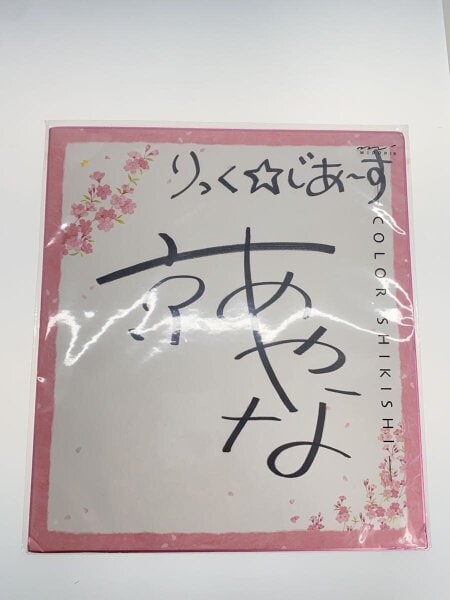 りっく☆じあ〜す
京
あやな
MIDORI
COLOR SHIKISHI